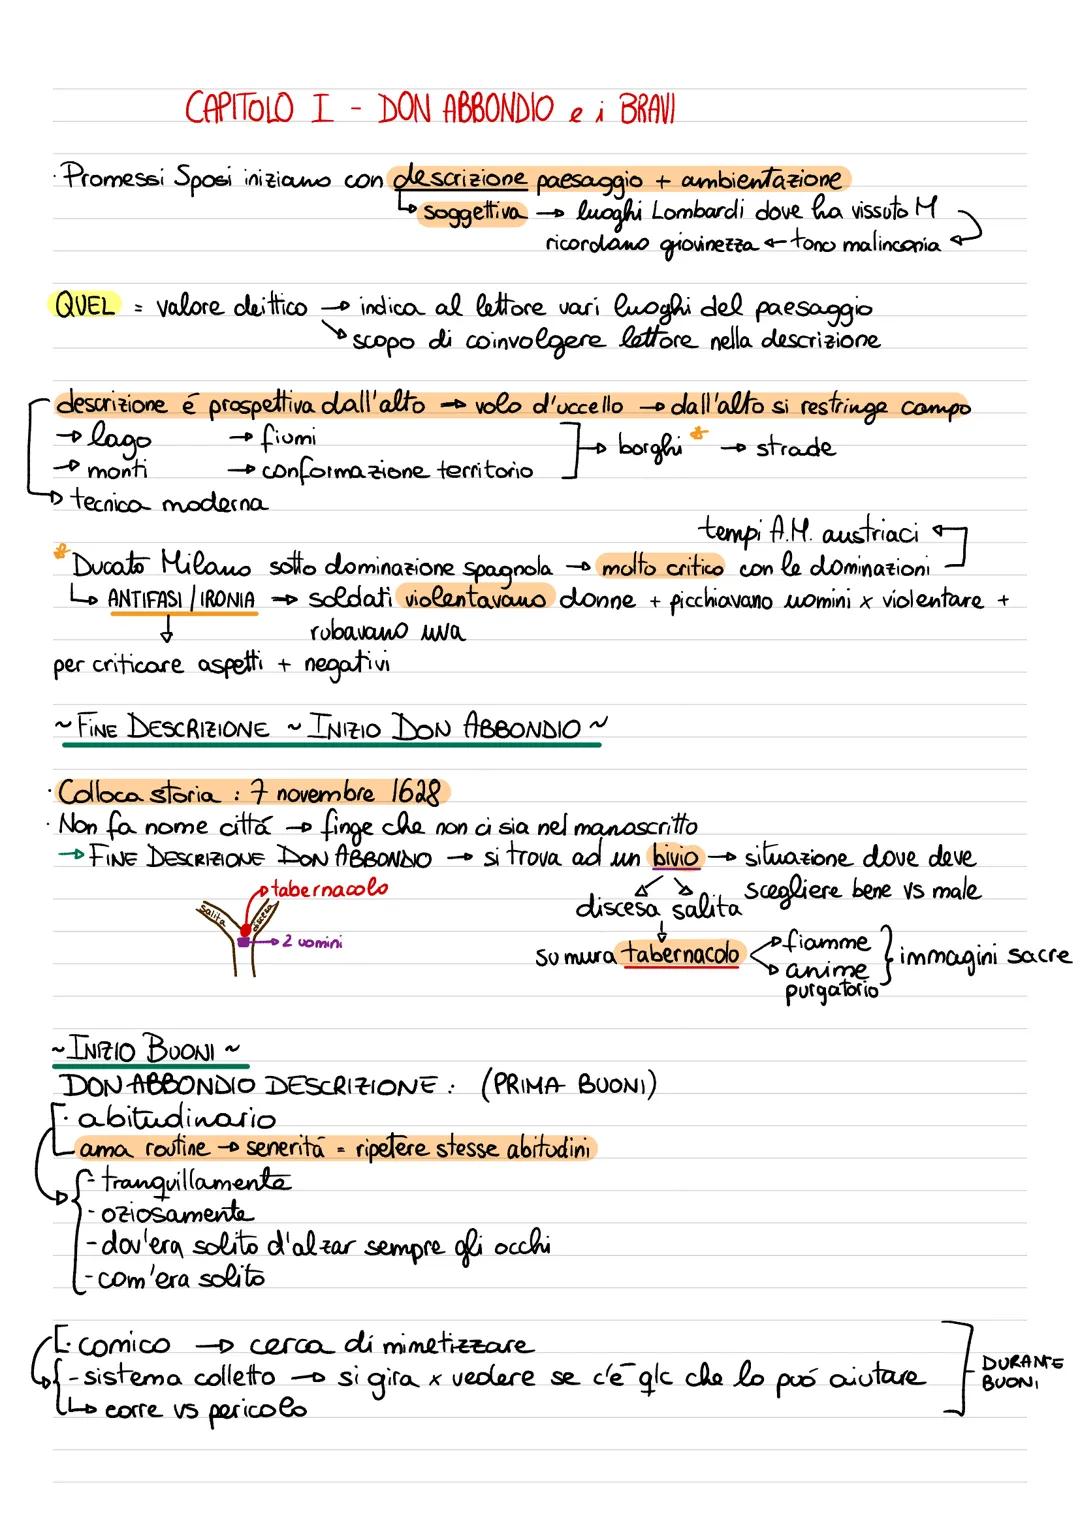 CAPITOLO I - DON ABBONDIO e i BRAVI
· Promessi Sposi iniziano con descrizione paesaggio + ambientazione
↳ soggettiva → luoghi Lombardi dove ha vissuto M
ricordano giovinezza ← tono malinconia
QUEL = valore deittico → indica al lettore vari luoghi del paesaggio
↘ scopo di coinvolgere lettore nella descrizione
descrizione é prospettiva dall'alto → volo d'uccello → dall'alto si restringe campo
→ lago → fiumi → borghi * → strade
→ monti → conformazione territorio
→ tecnica moderna
tempi A.M. austriaci
* Ducato Milano sotto dominazione spagnola → molto critico con le dominazioni
↳ ANTIFASI / IRONIA → soldati violentavano donne + picchiavano uomini x violentare +
rubavano uva
per criticare aspetti + negativi
~ FINE DESCRIZIONE ~ INIZIO DON ABBONDIO ~
· Colloca storia : 7 novembre 1628
· Non fa nome cittá → finge che non ci sia nel manoscritto
→ FINE DESCRIZIONE DON ABBONDIO → si trova ad un bivio → situazione dove deve
scegliere bene vs male
discesa salita
tabernacolo
salita
discesa
→ 2 uomini
su mura tabernacolo → fiamme } immagini sacre
→ anime
purgatorio
~ INIZIO BUONI ~
DON ABBONDIO DESCRIZIONE : (PRIMA BUONI)
· abitudinario
ama routine → seneritá = ripetere stesse abitudini
- tranquillamente
- oziosamente
- dov'era solito d'alzar sempre gli occhi
- com'era solito
· comico → cerca di mimetizzare
- sistema colletto → si gira x vedere se c'é qlc che lo puó aiutare
↳ corre vs pericolo
DURANTE
BUONI